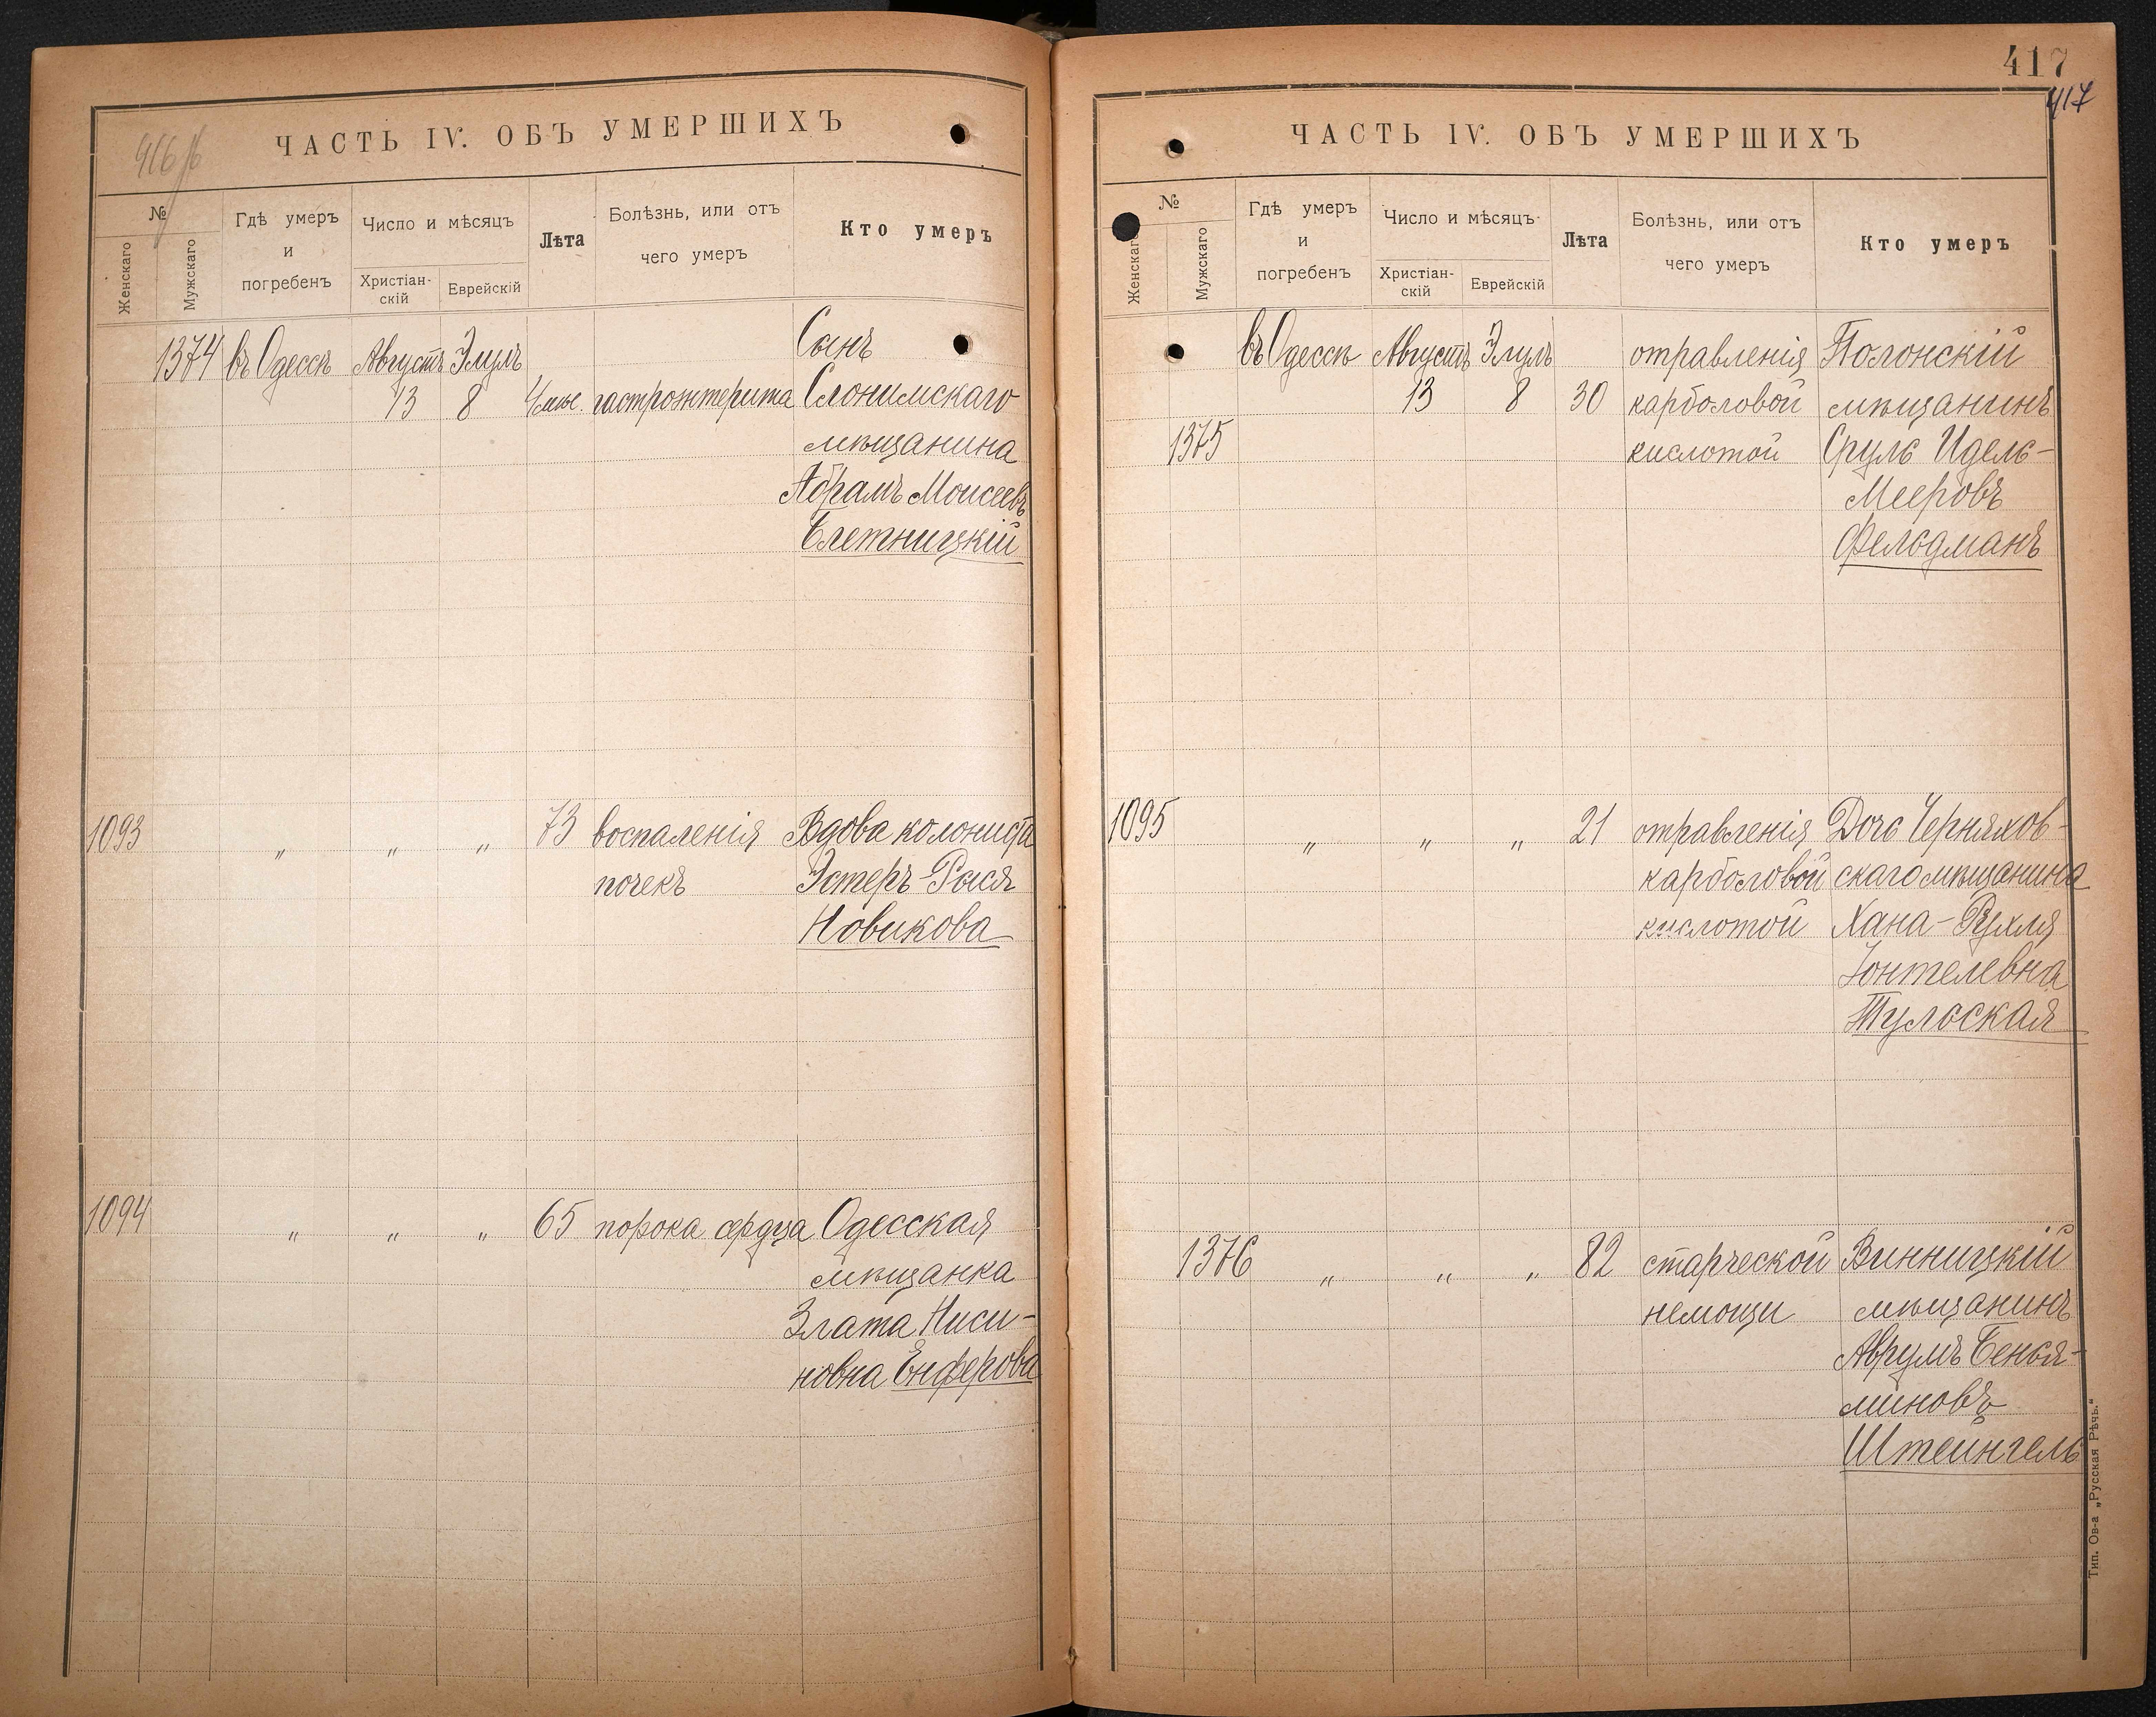 416 об
ЧАСТЬ IV. ОБЪ УМЕРШИХЪ
№
Женскаго
Мужскаго
Гдѣ умеръ
и
погребенъ
Число и мѣсяцъ
Христіан-
скій
Еврейскій
Лѣта
Болѣзнь, или отъ
чего умеръ
Кто умеръ
1374 въ Одессѣ Августъ Элулъ Сынъ
13 8 4 мѣс. гастроэнтерита Слонимскаго
мѣщанина
Абрамъ Моисеевъ
Блетницкій
1093 „ „ „ 73 воспаленія Вдова колониста
почекъ Эстеръ-Рыся
Новикова
1094 „ „ „ 65 порока сердца Одесская
мѣщанка
Злата Ниси-
новна Енферова
417
417
ЧАСТЬ IV. ОБЪ УМЕРШИХЪ
№
Женскаго
Мужскаго
Гдѣ умеръ
и
погребенъ
Число и мѣсяцъ
Христіан-
скій
Еврейскій
Лѣта
Болѣзнь, или отъ
чего умеръ
Кто умеръ
въ Одессѣ Августъ Элулъ отравленія Полонскій
13 8 30 карболовой мѣщанинъ
1375 кислотой Сруль Идель-
Мееровъ
Фельдманъ
1095 „ „ „ 21 отравленія Дочь Черняхов-
карболовой скаго мѣщанина
кислотой Хана-Рухля
Іонтелевна
Тульская
1376 „ „ „ 82 старческой Винницкій
немощи мѣщанинъ
Аврумъ Бенья-
миновъ
Штейнгель
Тип. Ов-а „Русская Рѣчь.“